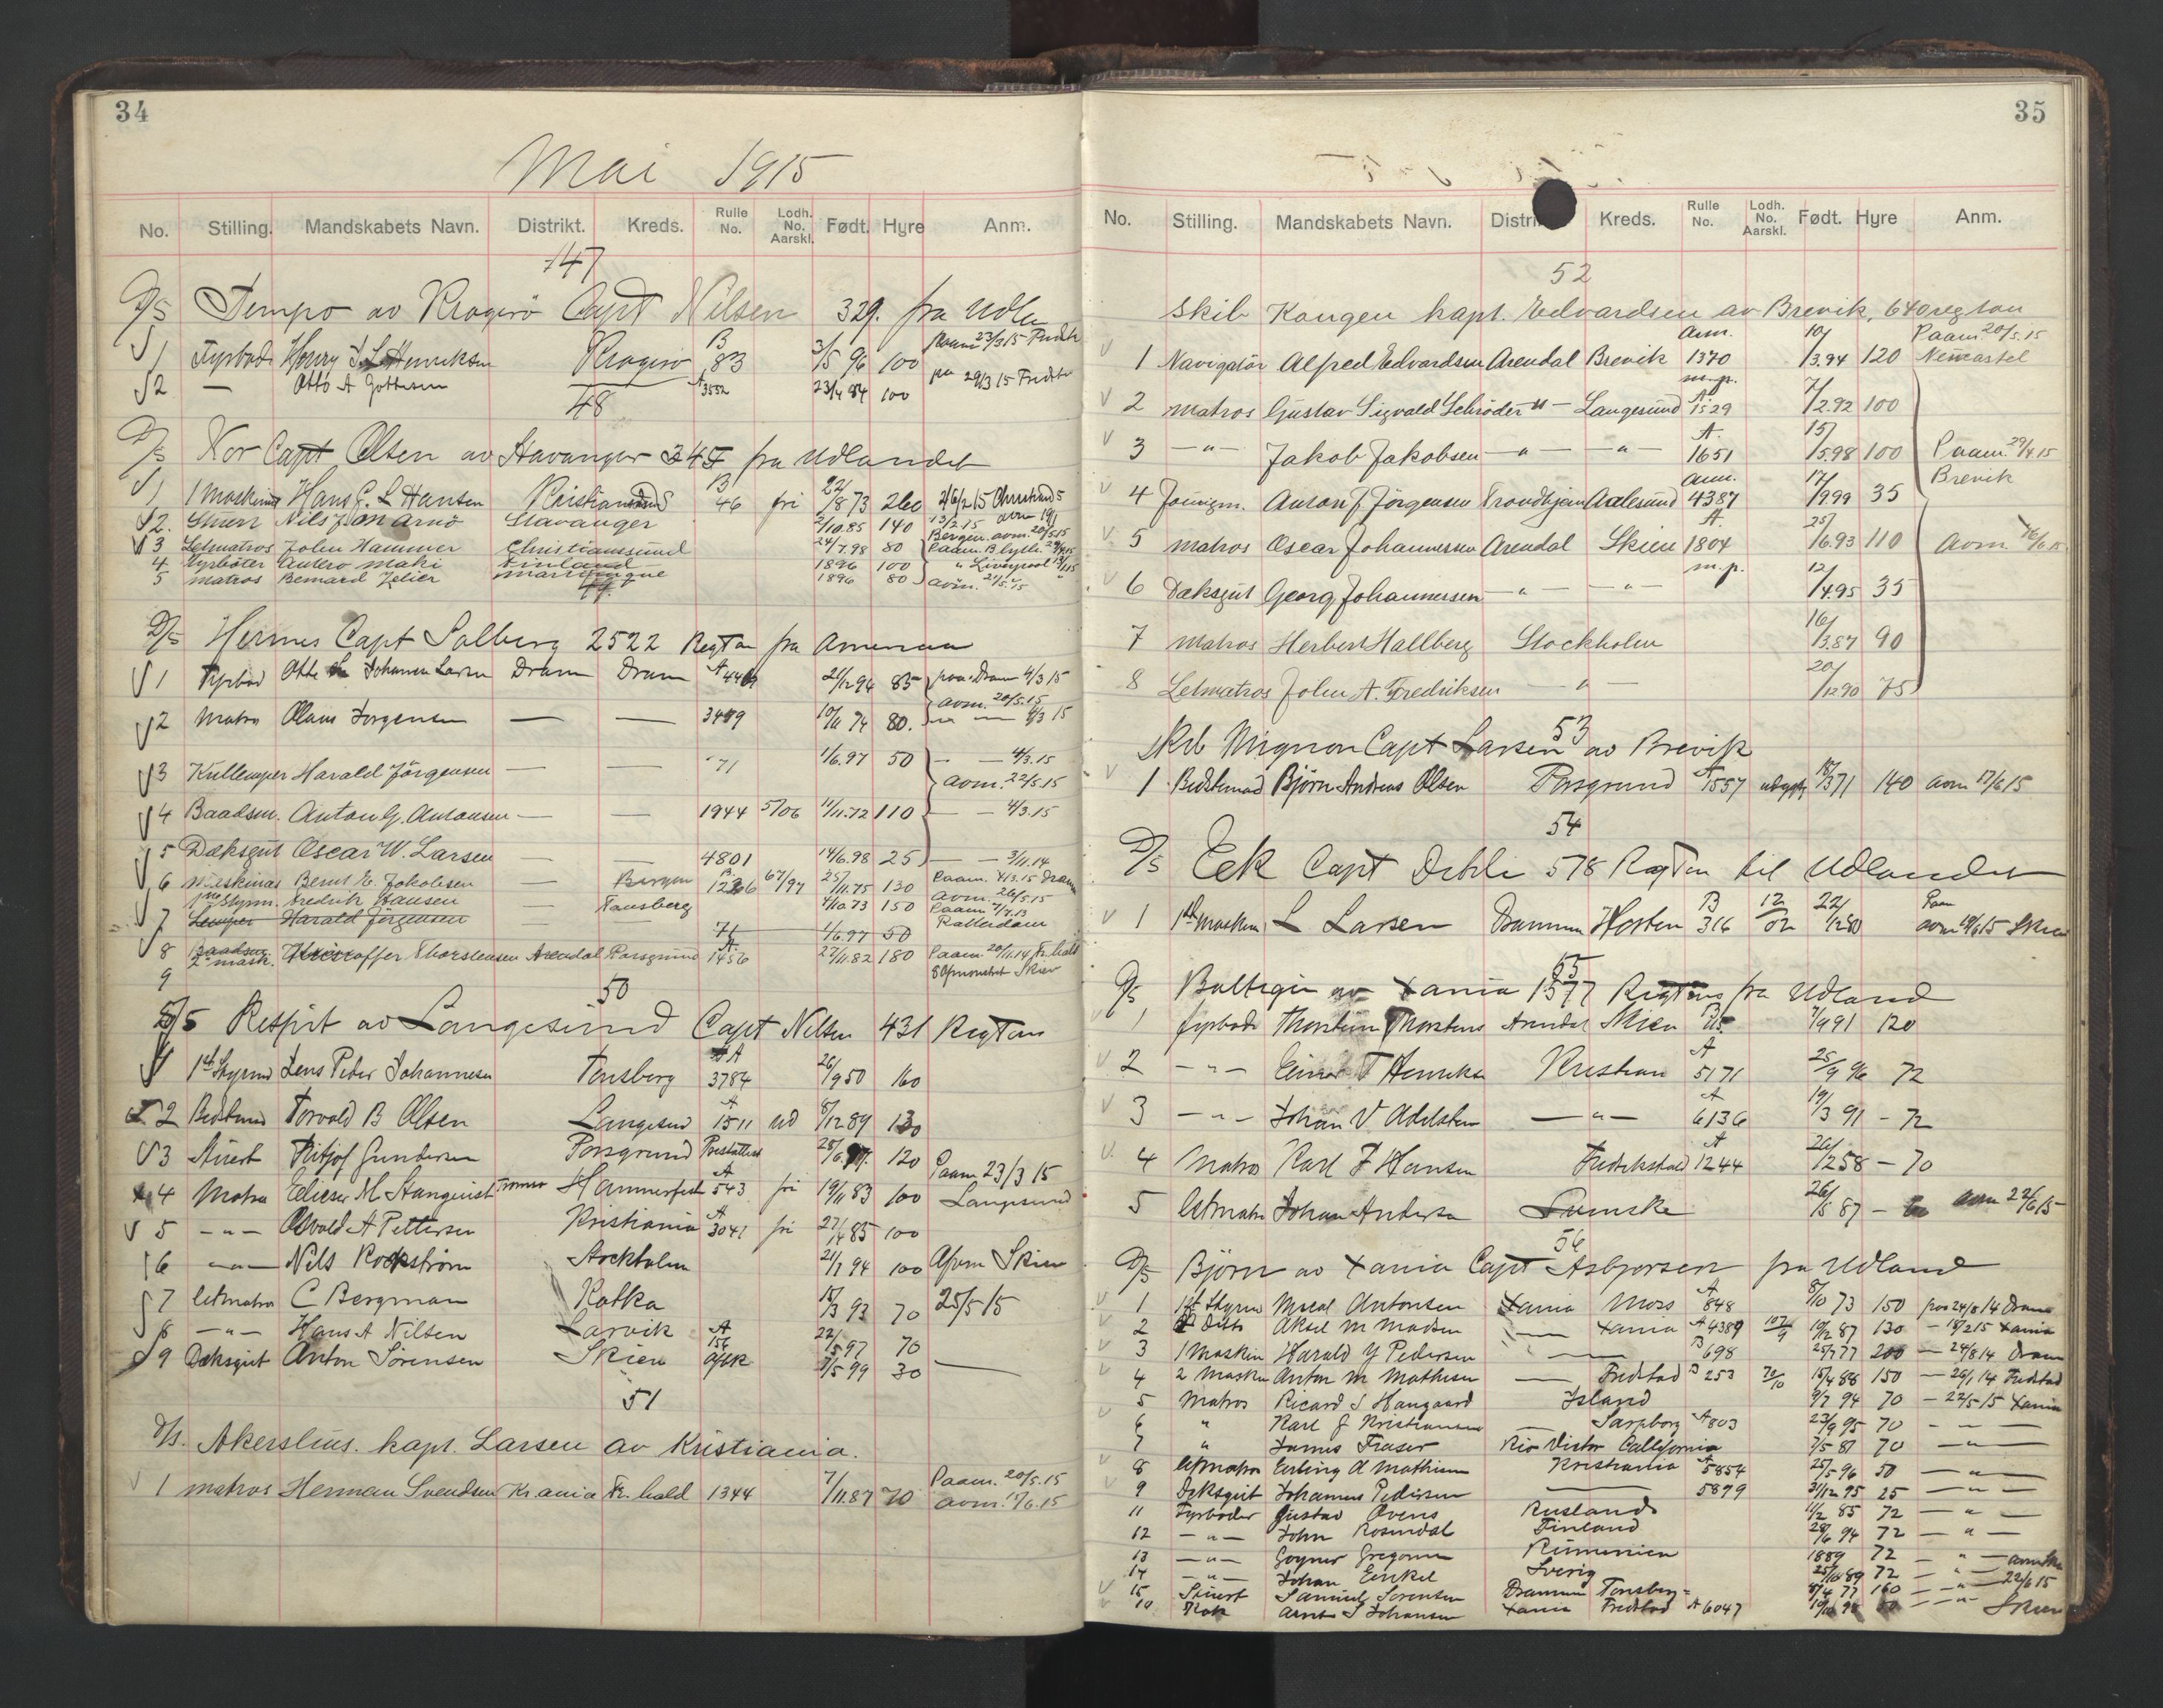 34
Mai 1915
No. Stilling. Mandskabets Navn. Distrikt. Kreds. Rulle No. Lodh. No. Aarskl. Født. Hyre Anm.
47
D/S Tempo av Kragerö Capt Nilsen 329. fra Udla
1 Fyrbød Henry Henriksen Kragerö B 83 3/5 96 100 Paam 23/3 15 Fredst
2 — Otto A Gottesen A 3552 23/4 84 100 pa 29/3 15 Fredst
48
D/S Nor Capt Olsen av Stavanger fra Udlandet
1 1 Maskinist Hans C. L Hansen Kristiansund S B 46 fri 22/8 73 260
2. Stuert Nils Jon Arnö Stavanger 2/10.85 140 13/2.15 avm 19/1
3 Letmatros John Hammer Christianssund 24/7.98 80 Bergen. avm. 20/5.15
4 Fyrböter Antero Maki Finland 1896 100 " Liverpool
5 matros Bernard Jelier Martinique 1896 80 avm. 27/5.15
49.
D/S Hermes Capt Solberg 2522 RegTon fra Amerika
1 Fyrbød Otto Johannes Larsen Dram Dram A 4469 21/12 94 85 paa Dram 4/3 15
avm. 20/5.15
2 Matro Olaus Jorgensen — — 3479 10/11 74 80. — 4/3 15
3 Kullemper Harald Jörgensen — — 71 1/6.97 50 — — 4/3.15
avm. 22/5.15
4 Baadsm. Anton G. Antonsen — — 1944 5/06 11/11.72 110 — — 4/3.15
5 Dæksgut Oscar W. Larsen — — 4801 14/6.98 25 — — 3/11.14
6 Maskinas Bernt E. Jakobsen — Bergen B. 1236 67/97 25/11.75 130 Paam. 4/3.15 Dram
1ste Styrm. Fredrik Hansen Tønsberg 4/10.73 150 avm. 26/5.15
7 Lemper Harald Jörgensen — 71 1/6.97 50 Paam 7/7.13 Rotterdam
8 2 mask. Kristoffer Thorstensen Arendal Porsgrund A. 1456 27/11.82 180 Paam. 20/11.14 Fr.hald
9 Skien
50
D/S Respit av Langesund Capt Nilsen 431 RegTons
1 1st Styrmd Jens Peter Johannesen Tönsberg A 3784 26/9 50 160
2 Bedstmd Torvald B Olsen Langesund A 1511 ud 8/12 89 130
3 Stuert Fritjof Gundersen Porsgrund 28/6 120
4 Matros Edieser M Stanquist Tromsø Hammerfest A 543 fri 19/11 83 100 Paam 23/3 15 Langesund
5 -"- Osvald A Pettersen Kristiania A 3041 fri 27/4 85 100
6 -"- Nils Rockström Stockholm 21/7 94 100 Afm Skien
7 letmatro C Bergman Kotka 15/3 93 70 25/5 15
8 -"- Hans A Nilsen Larvik A 156 22/5 97 70
9 Dæksgut Anton Sörensen Skien 7/5 99 30 —
51
D/S. Akershus. kapt. Larsen av Kristiania.
1 matros Herman Svendsen Kr.ania Fr.hald 1344 7/11.87 70 Paam. 20/5.15
avm. 1/6.15
35
No. Stilling. Mandskabets Navn. Distrikt. Kreds. Rulle No. Lodh. No. Aarskl. Født. Hyre Anm.
52
Skib Kongen kapt. Edvardsen av Brevik, 640 regton
1 Navigatör Alfred Edvardsen Arendal Brevik Ann. 1370 10/3.94 120 Paam. 20/5.15 Newcastel
2 matros Gustav Sigvald Schröder -"- Langesund m.p. A. 1529 7/2.92 100
3 -"- Jakob Jakobsen -"- -"- A. 1651 15/5.98 100 Paam. 29/4.15
4 Jomgm. Anton J. Jörgensen Trondhjem Aalesund Ann. 4387 17/9.99 35 Brevik
5 matros Oscar Johannessen Arendal Skien A. 1804 25/6.93 110 avm. 16/6.15
6 Dæksgut Georg Johannessen -"- -"- m.p. 12/4.95 35
7 matros Herbert Hallberg Stockholm 16/3.87 90
8 Letmatros John A. Fredriksen -"- 20/12.90 75
53
Skib Mignon Capt Larsen av Brevik
1 Bedstemd Björn Andreas Olsen Porsgrund A 1557 18/3 71 140 avm 17/6 15
54
D/S Eek Capt Dehli 578 RegTon til Udlandet
1 1st Maskin L Larsen Drammen Horten B 316 12/02 22/12 80 Paam avm 19/6 15 Skien
55
D/S Baltagin av Xania 1577 RegTons fra Udland
1 fyrbøder Thorstein Thorstens Arendal Skien B 7/9 91 120
2 -"- Einar T Henriksen Kristian A 5171 25/9 96 72
3 -"- Johan V Adelsten -"- A 6136 19/3 91 - 72
4 Matro Karl J Hansen Fredrikshald A 1244 26/12 58 - 70
5 letmatro Johan Andersen Svenske 26/5 87 - avm 22/6 15
56
D/S Björn av Xania Capt Asbjørsen fra Udland
1 1st Styrmd Antonsen Xania Moss A 848 8/10 73 150 paa 24/8 14 Dram
2 2 Ditto Aksel M Madsen — Xania A 4389 107/9 19/2 87 130 - 18/2 15 Xania
3 1 Maskin Harald Y Pedersen — B 698 25/7 77 200 - 24/8 14 Dram
4 2 Maskin Anton M Mathisen — Fredstad B 253 70/10 15/4 88 150 - 26/1 14 Fredstad
5 Matros Ricard S Haugaard Island 9/7 94 70 - 22/5 15 Xania
6 " Karl J Kristiansen — Sarpborg A 803 23/9 95 70 - - -
7 " James Fraser Rio Victor Callifornia 7/5 87 70 - " -
8 letmatro Erling A Mathisen Kristiania A 5854 25/5 96 50 - " -
9 Dæksgut Johannes Pedersen — 5879 31/12 95 25 - " -
11 Fyrbøder Gustav Ovens Rusland 11/2 85 72 - " -
12 -"- John Rosendal Finland 28/6 94 72 - " -
13 -"- Gregorium Rumenien 1889 72 - " - avm Ski
14 -"- Johan Einkel Sverig 25/10 89 72 - " - 22/6 15
15 Stuert Samuel Sorensen Drammen Tonsberg 8/4 77 160 - " - Skien
10 Kok Arnt S Johansen Xania Fredstad A 6047 19/10 98 50 - " -